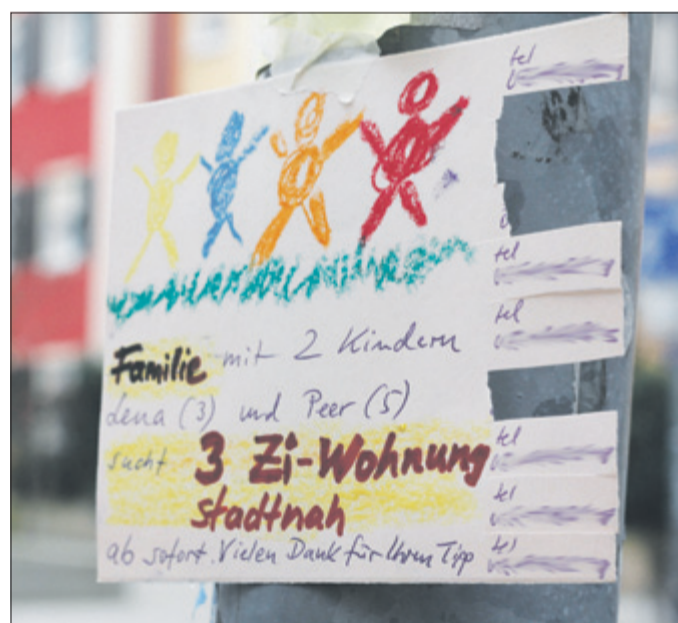 Familie mit 2 Kindern
Lena (3) und Peer (5)
sucht 3 Zi-Wohnung
stadtnah
ab sofort. Vielen Dank für Ihren Tipp
tel
tel
tel
tel
tel
tel